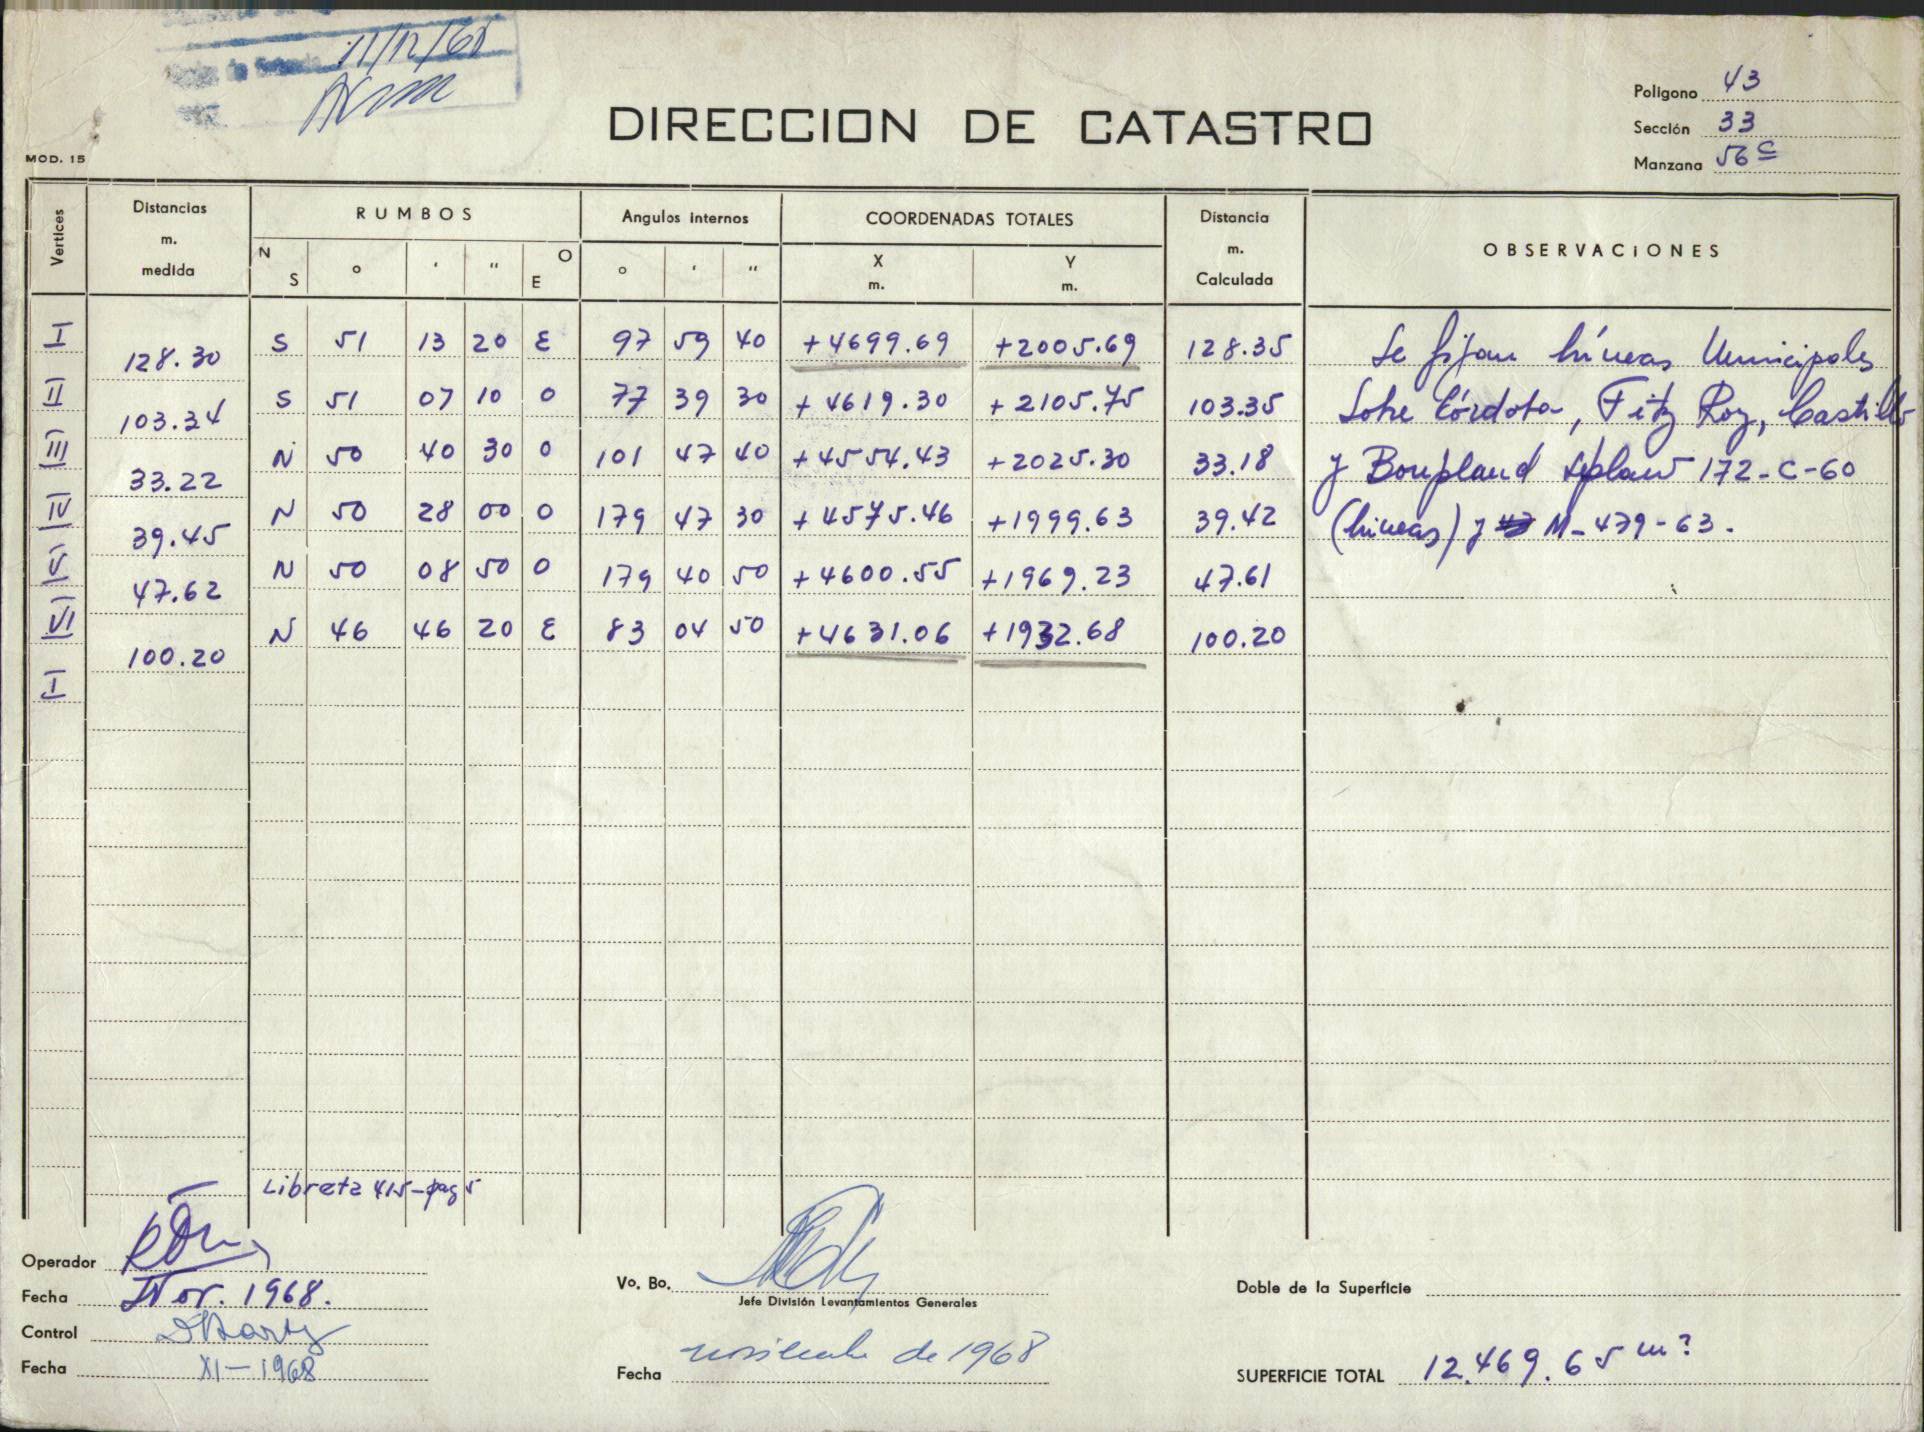 11/12/68
DIRECCION DE CATASTRO
Polígono 43
Sección 33
Manzana 56 c
MOD. 15
Vertices
Distancias m. medida
RUMBOS
N S o ' " O E
Angulos internos
o ' "
COORDENADAS TOTALES
X m. Y m.
Distancia m. Calculada
OBSERVACIONES
I 128.30 S 51 13 20 E 97 59 40 +4699.69 +2005.69 128.35 Se fijan Líneas Municipales
II 103.34 S 51 07 10 O 77 39 30 +4619.30 +2105.75 103.35 Sobre Córdoba, Fitz Roy, Castillo
III 33.22 N 50 40 30 O 101 47 40 +4554.43 +2025.30 33.18 y Bonpland s/plano 172-C-60
IV 39.45 N 50 28 00 O 179 47 30 +4575.46 +1999.63 39.42 (Líneas) y M-479-63.
V 47.62 N 50 08 50 O 179 40 50 +4600.55 +1969.23 47.61
VI 100.20 N 46 46 20 E 83 04 50 +4631.06 +1932.68 100.20
I
Libreta 415-pag 5
Operador
Fecha Nov. 1968.
Control
Fecha XI-1968
Vo. Bo.
Jefe División Levantamientos Generales
Fecha noviembre de 1968
Doble de la Superficie
SUPERFICIE TOTAL 12.469.65 m2